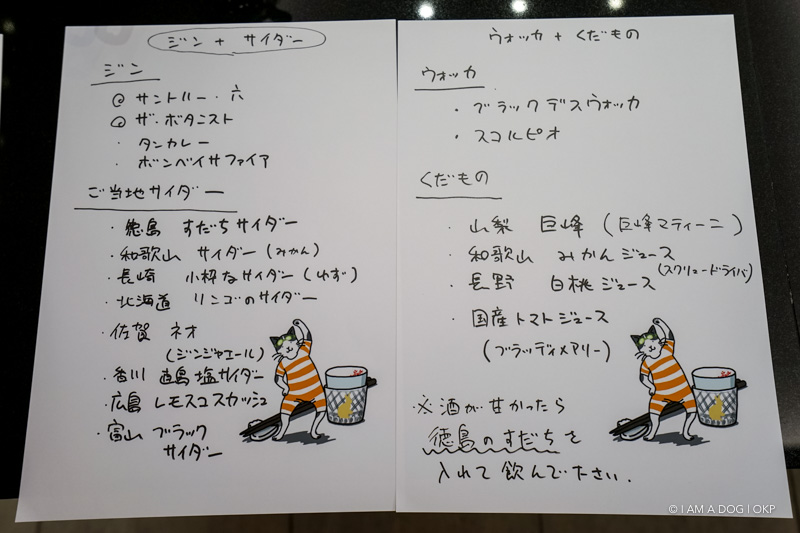 ジン + サイダー
ジン
◎ サントリー・六
◎ ザ・ボタニスト
・ タンカレー
・ ボンベイサファイア
ご当地サイダー
・徳島 すだちサイダー
・和歌山 サイダー(みかん)
・長崎 小粋なサイダー(ゆず)
・北海道 リンゴのサイダー
・佐賀 ネオ
(ジンジャエール)
・香川 直島塩サイダー
・広島 レモスコスカッシュ
・富山 ブラック
サイダー
ウォッカ + くだもの
ウォッカ
・ ブラックデスウォッカ
・ スコルピオ
くだもの
・ 山梨 巨峰 (巨峰マティーニ)
・ 和歌山 みかんジュース
(スクリュードライバ)
・ 長野 白桃ジュース
・ 国産トマトジュース
(ブラッディメアリー)
※酒が甘かったら
徳島のすだちを
入れて飲んで下さい.
© I AM A DOG | OKP